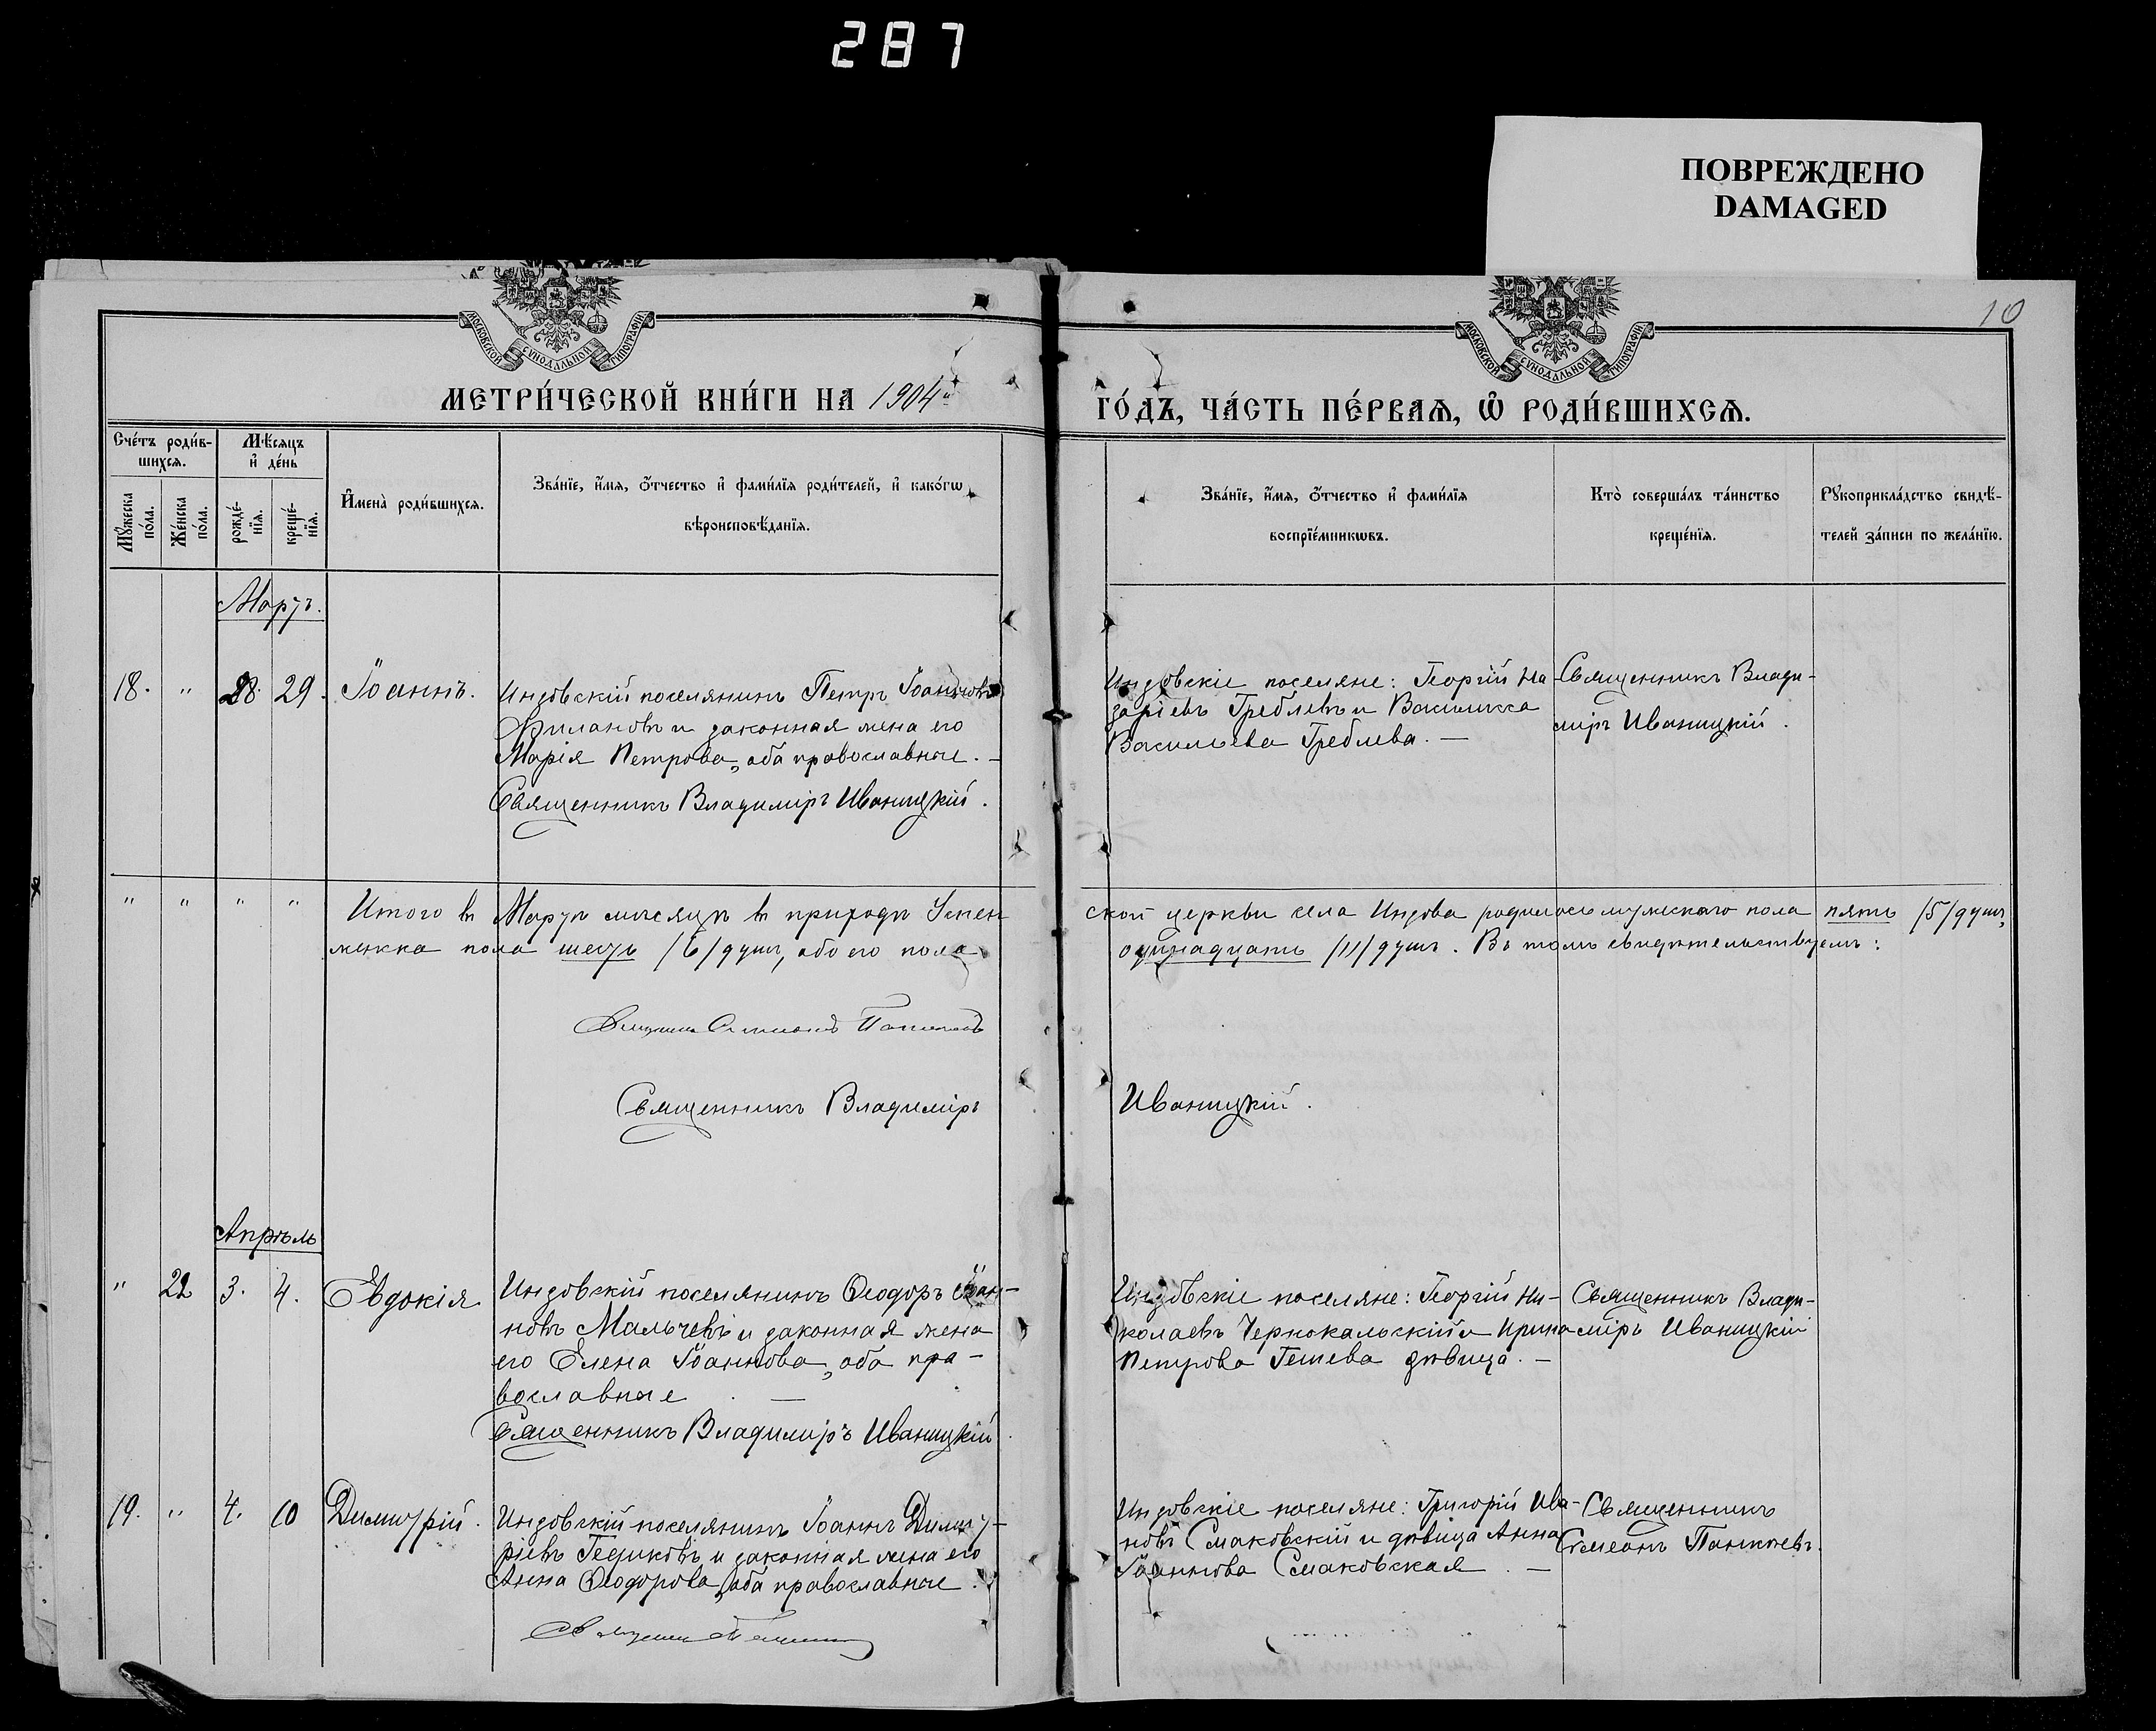 287
ПОВРЕЖДЕНО
DAMAGED
10
МОСКОВСКОЙ СУНОДАЛЬНОЙ ТИПОГРАФІИ
МОСКОВСКОЙ СУНОДАЛЬНОЙ ТИПОГРАФІИ
МЕТРИ́ЧЕСКОЙ КНИ́ГИ НА 1904й
ГО́ДЪ, ЧА́СТЬ ПЕ́РВАѦ, Ѡ҆ РОДИ́ВШИХСѦ.
Сче́тъ роди́в-
шихсѧ.
Мѣ́сѧцъ
и҆ де́нь
Мꙋ́жеска
по́ла.
Же́нска
по́ла.
рожде́-
нїѧ.
креще́-
нїѧ.
И҆мена̀ роди́вшихсѧ.
Зва́нїе, и҆́мѧ, ѻ҆́тчество и҆ фами́лїѧ роди́телей, и҆ како́гѡ
вѣроисповѣ́данїѧ.
Зва́нїе, и҆́мѧ, ѻ҆́тчество и҆ фами́лїѧ
воспрїе́мникѡвъ.
Кто̀ соверша́лъ та́инство
креще́нїѧ.
Рꙋкоприкла́дство свидѣ́-
телей за́писи по жела́нїю.
Мартъ.
18. " 28. 29. Іоаннъ.
Индовскій поселянинъ Петръ Іоанновъ
Филановъ и законная жена его
Марія Петрова, оба православные. –
Священникъ Владиміръ Иваницкій.
Индовскіе поселяне: Георгій На-
заріевъ Греблевъ и Василикка
Васильева Греблева. –
Священникъ Влади-
міръ Иваницкій.
" " " " Итого въ Мартѣ мѣсяцѣ въ приходѣ Успен
ской церкви села Индова родилось мужескаго пола пять /5/ душъ,
женска пола шесть /6/ душъ, обоего пола
одинадцать /11/ душъ. Въ томъ свидѣтельствуемъ:
Священникъ Владиміръ
Иваницкій.
Апрѣль
" 22 3. 4. Евдокія
Индовскій поселянинъ Ѳеодоръ Іоан-
новъ Мальчевъ и законная жена
его Елена Іоаннова, оба пра-
вославные. –
Священникъ Владиміръ Иваницкій.
Индовскіе поселяне: Георгій Ни-
колаевъ Чернокальскій и Ирина
Петрова Гешева дѣвица. –
Священникъ Влади-
міръ Иваницкій
19. " 4. 10 Димитрій.
Индовскій поселянинъ Іоаннъ Димит-
ріевъ Гедиковъ и законная жена его
Анна Ѳеодорова, оба православные.
Индовскіе поселяне: Григорій Ива-
новъ Смаковскій и дѣвица Анна
Іоаннова Смаковская. –
Священникъ
Симеонъ